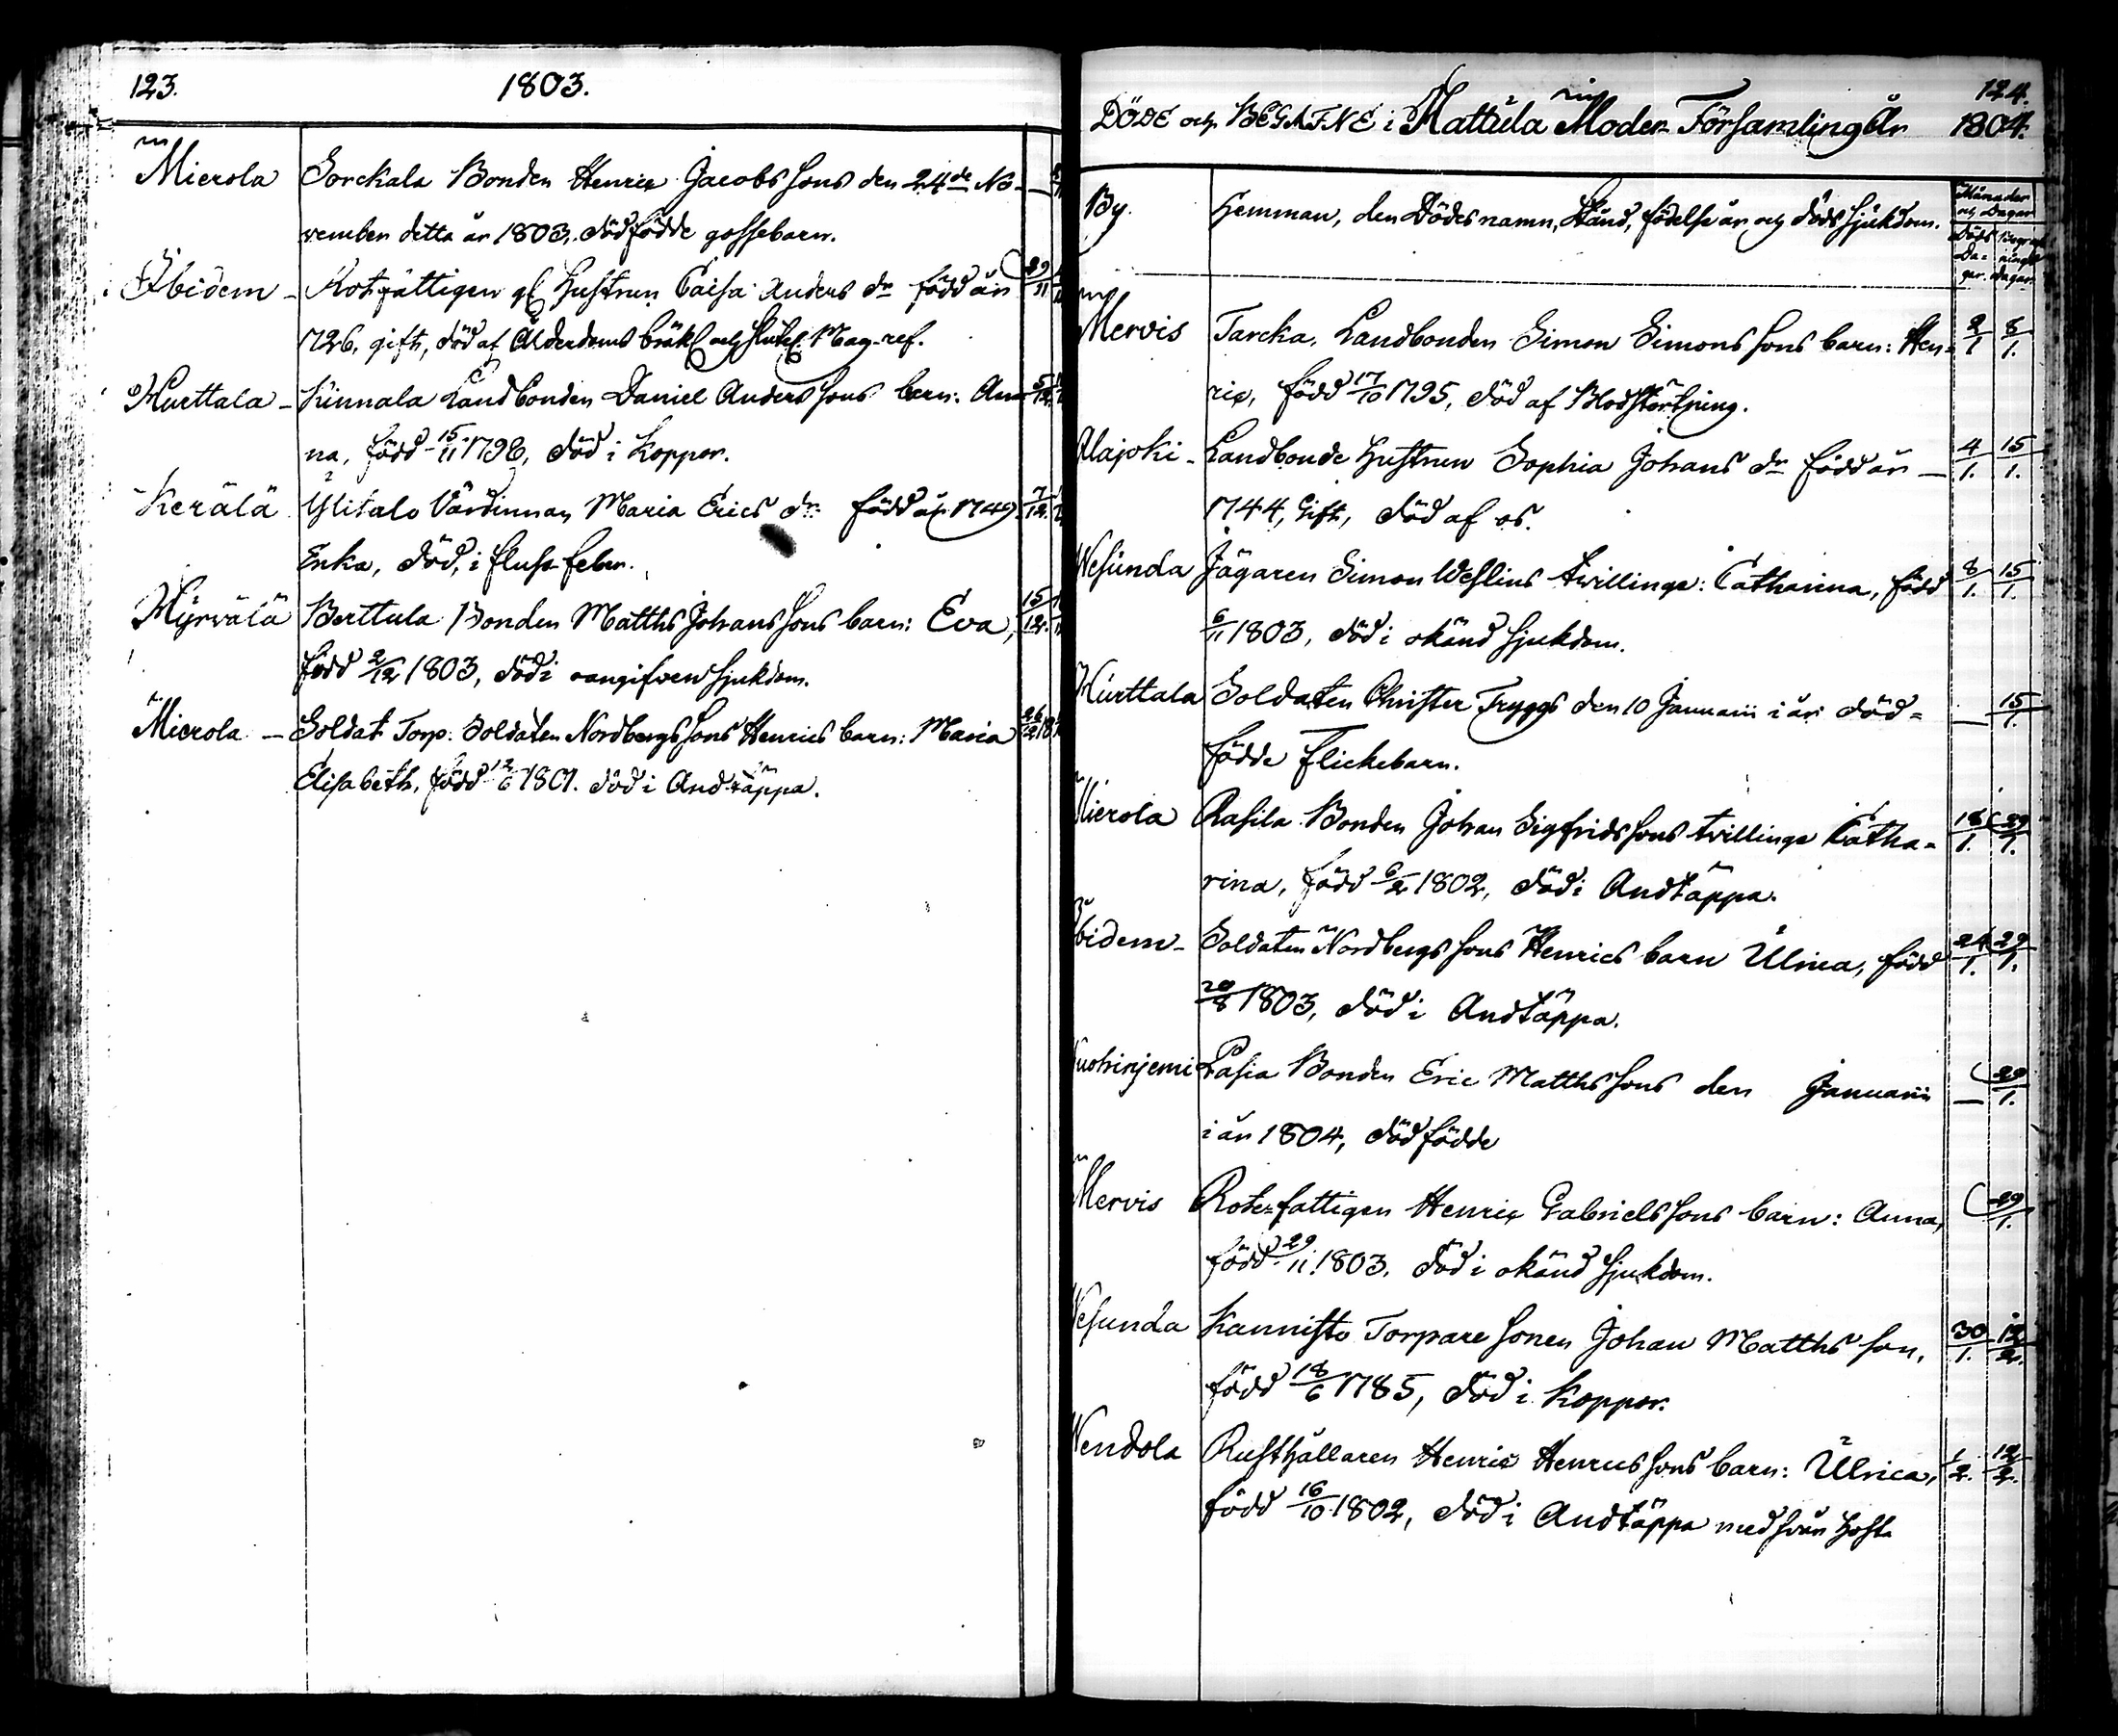 123. 1803.
Mierola Sorckala Bonden Henric Jacobs sons den 24de No-
vember detta år 1803. dödfödde gossebarn.
Ibidem - Rotefattigen gl Hustrun Caisa Anders dr född år 29/11
1726, gift, död af Ålderdoms bräkl och slutel. Mag-ref.
Hurttala - Kinnala Landbonden Daniel Anders sons barn: An- 5/12
na, född 15/11 1798, död i Koppor.
Kerälä Ylitalo Värdinnan Maria Erics dr född år 1749 7/12
Enka, död, i fluss-feber.
Hyrvälä Berttula Bonden Matths Johans sons barn: Eva, 15/12
född 2/12 1803, död i oangifven sjukdom.
Mierola - Soldat Torp. Soldaten Nordbergs sons Henrics barn: Maria
Elisabeth, född 12/6 1801. död i Andtäppa.
124.
DÖDE och BEGRAFNE i Hattula Moder Församling År 1804.
By. Hemman, den Dödes namn, Stånd, födelse år och döds sjukdom.
Månader
och Dagar
Döds Begraf
Da= nings
gar. dagar.
Mervis Tarcka, Landbonden Simon Simons sons barn: Hen- 2/1 8/1.
ric, född 17/10 1795, död af Blodstörtning.
Alajoki - Landbonde Hustrun Sophia Johans dr född år 4/1. 15/1.
1744, Gift, död af os.
Wesunda Jägaren Simon Weslins tvillinge: Catharina, född 8/1. 15/1.
6/11 1803, död i okänd sjukdom.
Hurttala Soldaten Christer Tryggs den 10 Januarii i år död= — 15/1.
födde flickebarn.
Mierola Rasila Bonden Johan Sigfrids sons tvillinge Catha- 18/1. 29/1.
rina, född 6/2 1802, död i Andtäppa.
Ibidem - Soldaten Nordbergs sons Henrics barn Ulrica, född 24/1. 29/1.
20/8 1803, död i Andtäppa.
Wuohinjemi Pasia Bonden Eric Matths sons den Januarii — 29/1.
i år 1804, dödfödde
Mervis Rote=fattigen Henric Gabriels sons barn: Anna, 29/1.
född 29/11. 1803. död i okänd sjukdom.
Wesunda Kannisto Torpare sonen Johan Matths son, 30/1. 12/2.
född 18/6 1785, död i Koppor.
Wendola Rusthållaren Henric Henrics sons barn: Ulrica, 1/2. 12/2.
född 16/10 1802, död i Andtäppa med svår hosta